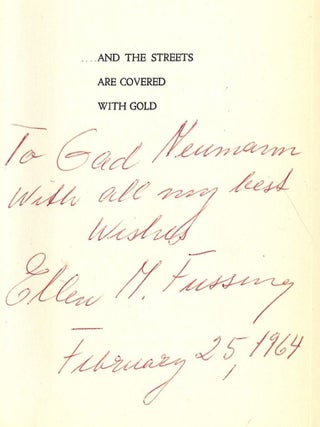 ....AND THE STREETS
ARE COVERED
WITH GOLD
To Gad Neumann
With all my best
Wishes
Ellen M. Fussing
February 25, 1964